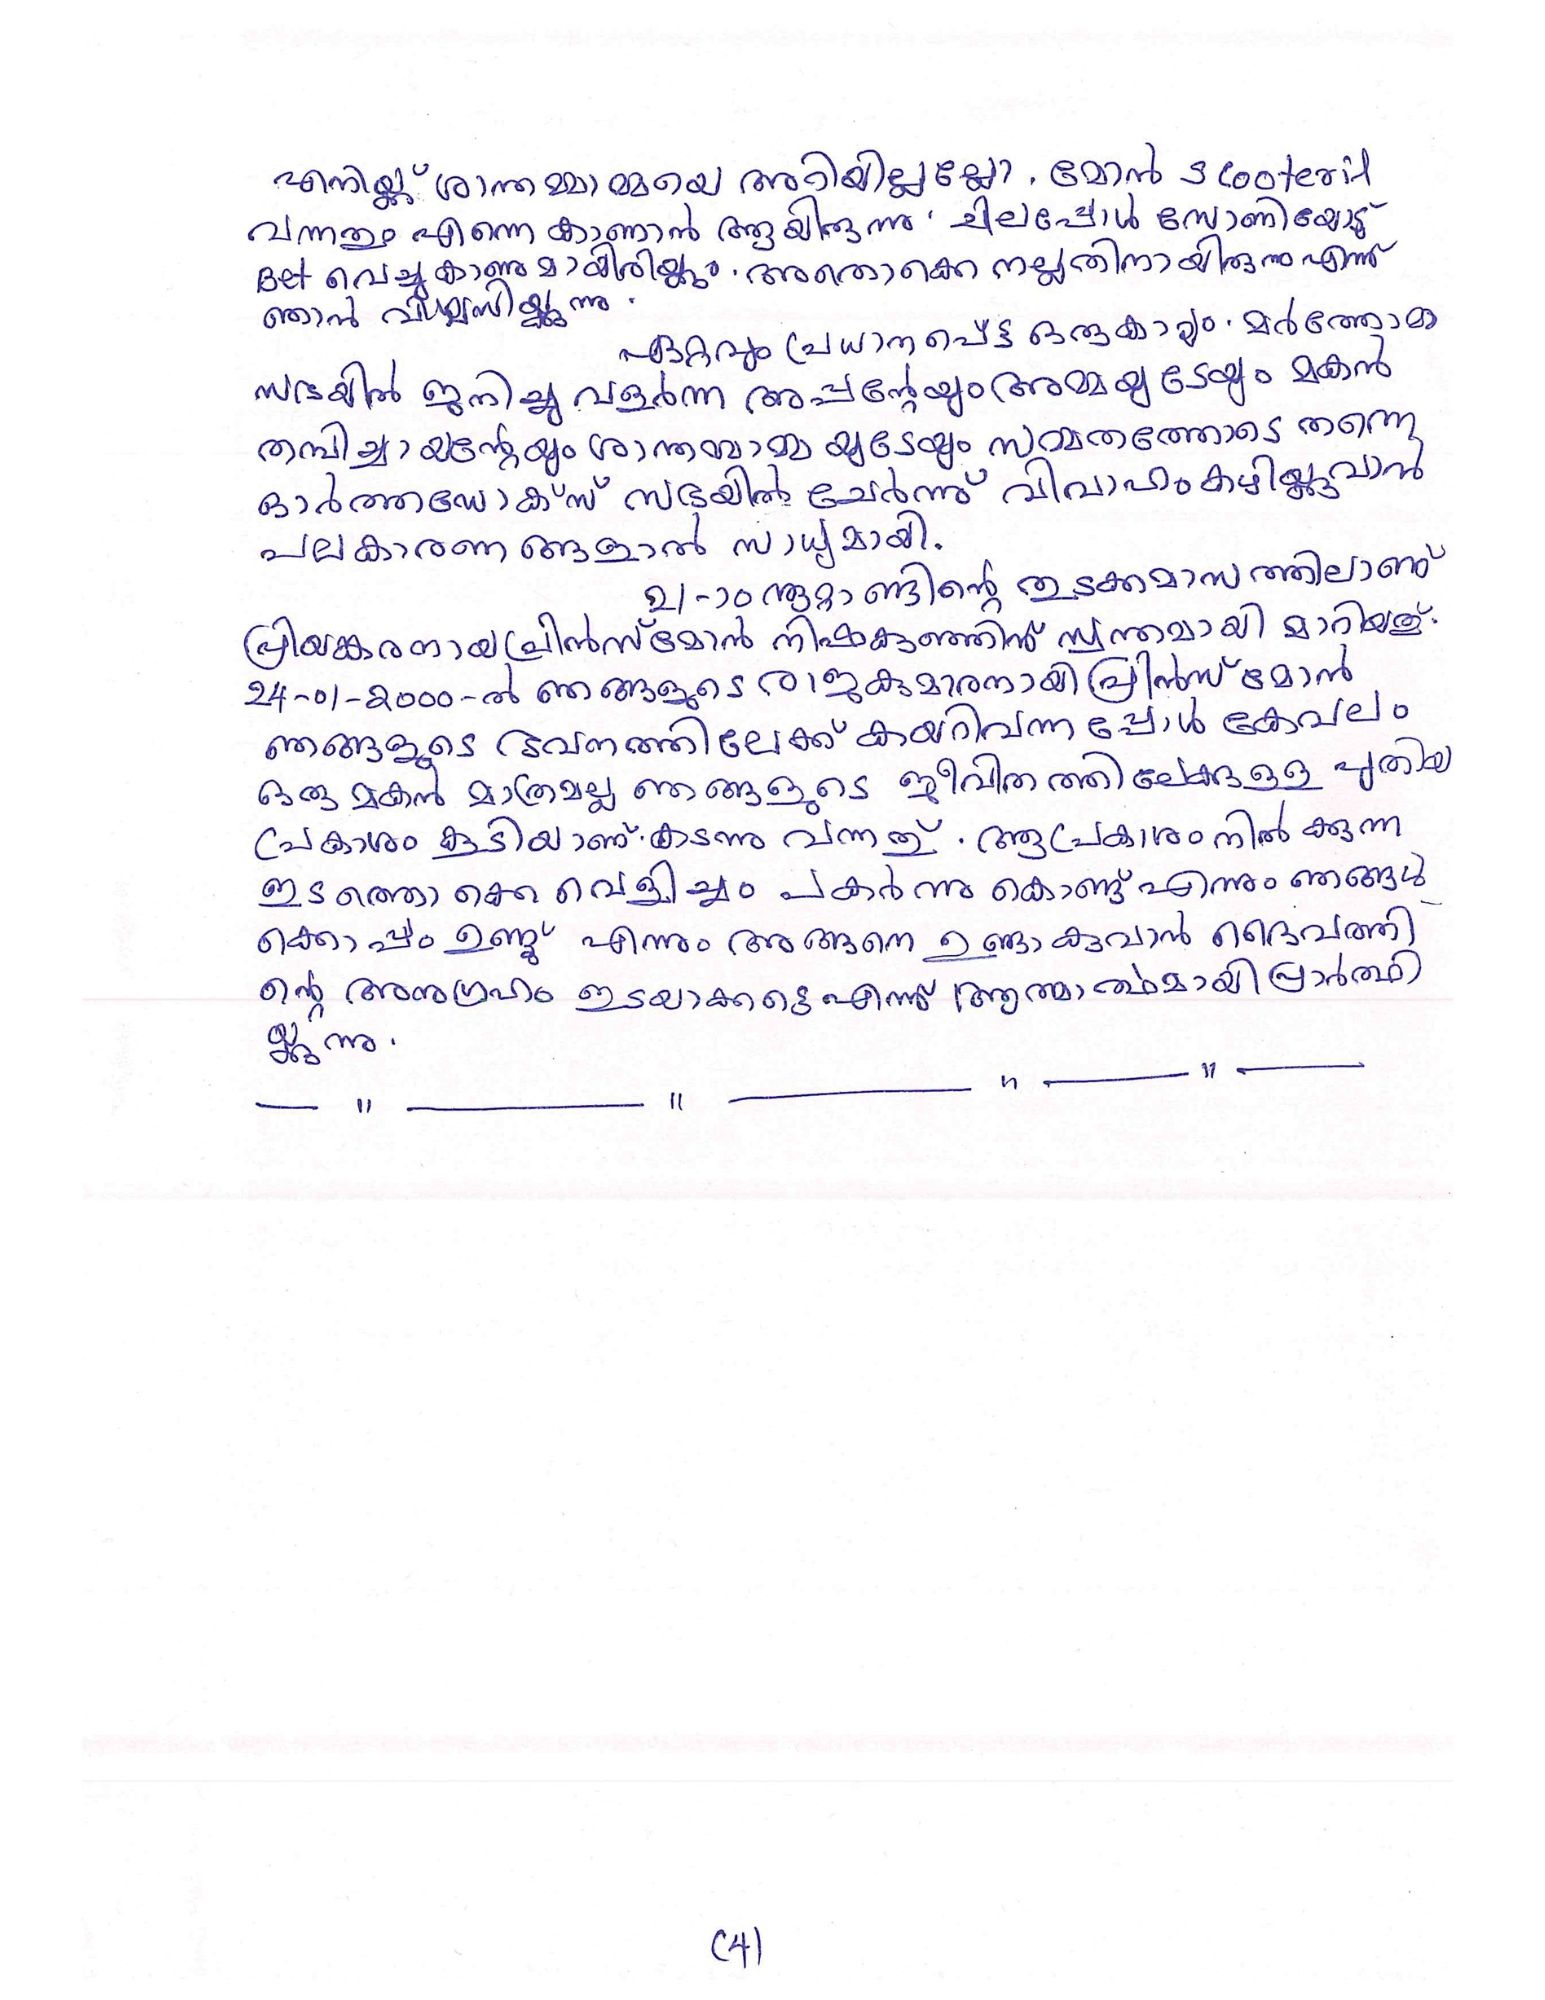 എനിയ്ക്ക് ശാന്തമ്മാമ്മയെ അറിയില്ലല്ലോ. മോൻ Scooteril
വന്നതും എന്നെ കാണാൻ ആയിരുന്നു. ചിലപ്പോൾ സോണിയോടു്
Bet വെച്ചുകാണുമായിരിയ്ക്കും. അതൊക്കെ നല്ലതിനായിരുന്നു എന്ന്
ഞാൻ വിശ്വസിയ്ക്കുന്നു.
ഏറ്റവും പ്രധാനപ്പെട്ട ഒരുകാര്യം. മർത്തോമ
സഭയിൽ ജനിച്ചു വളർന്ന അപ്പന്റേയും അമ്മയുടേയും മകൻ
തമ്പിച്ചായന്റേയും ശാന്തമ്മാമ്മയുടേയും സമ്മതത്തോടെ തന്നെ
ഓർത്തഡോക്സ് സഭയിൽ ചേർന്നു് വിവാഹംകഴിയ്ക്കുവാൻ
പലകാരണങ്ങളാൽ സാധ്യമായി.
21-ാം നൂറ്റാണ്ടിന്റെ തുടക്കമാസത്തിലാണു്
പ്രിയങ്കരനായ പ്രിൻസ്മോൻ നിഷകുഞ്ഞിനു് സ്വന്തമായി മാറിയതു്.
24-01-2000-ൽ ഞങ്ങളുടെ രാജകുമാരനായി പ്രിൻസ് മോൻ
ഞങ്ങളുടെ ഭവനത്തിലേക്ക് കയറിവന്നപ്പോൾ കേവലം
ഒരു മകൻ മാത്രമല്ല ഞങ്ങളുടെ ജീവിതത്തിലേക്കുള്ള പുതിയ
പ്രകാശം കൂടിയാണ് കടന്നു വന്നതു്. ആ പ്രകാശം നിൽക്കുന്ന
ഇടത്തൊക്കെ വെളിച്ചം പകർന്നു കൊണ്ട് എന്നും ഞങ്ങൾ
ക്കൊപ്പം ഉണ്ടു് എന്നും അങ്ങനെ ഉണ്ടാകുവാൻ ദൈവത്തി
ന്റെ അനുഗ്രഹം ഇടയാക്കട്ടെ എന്ന് ആത്മാർത്ഥമായി പ്രാർത്ഥി
യ്ക്കുന്നു.
— " — " — " — " —
(4)